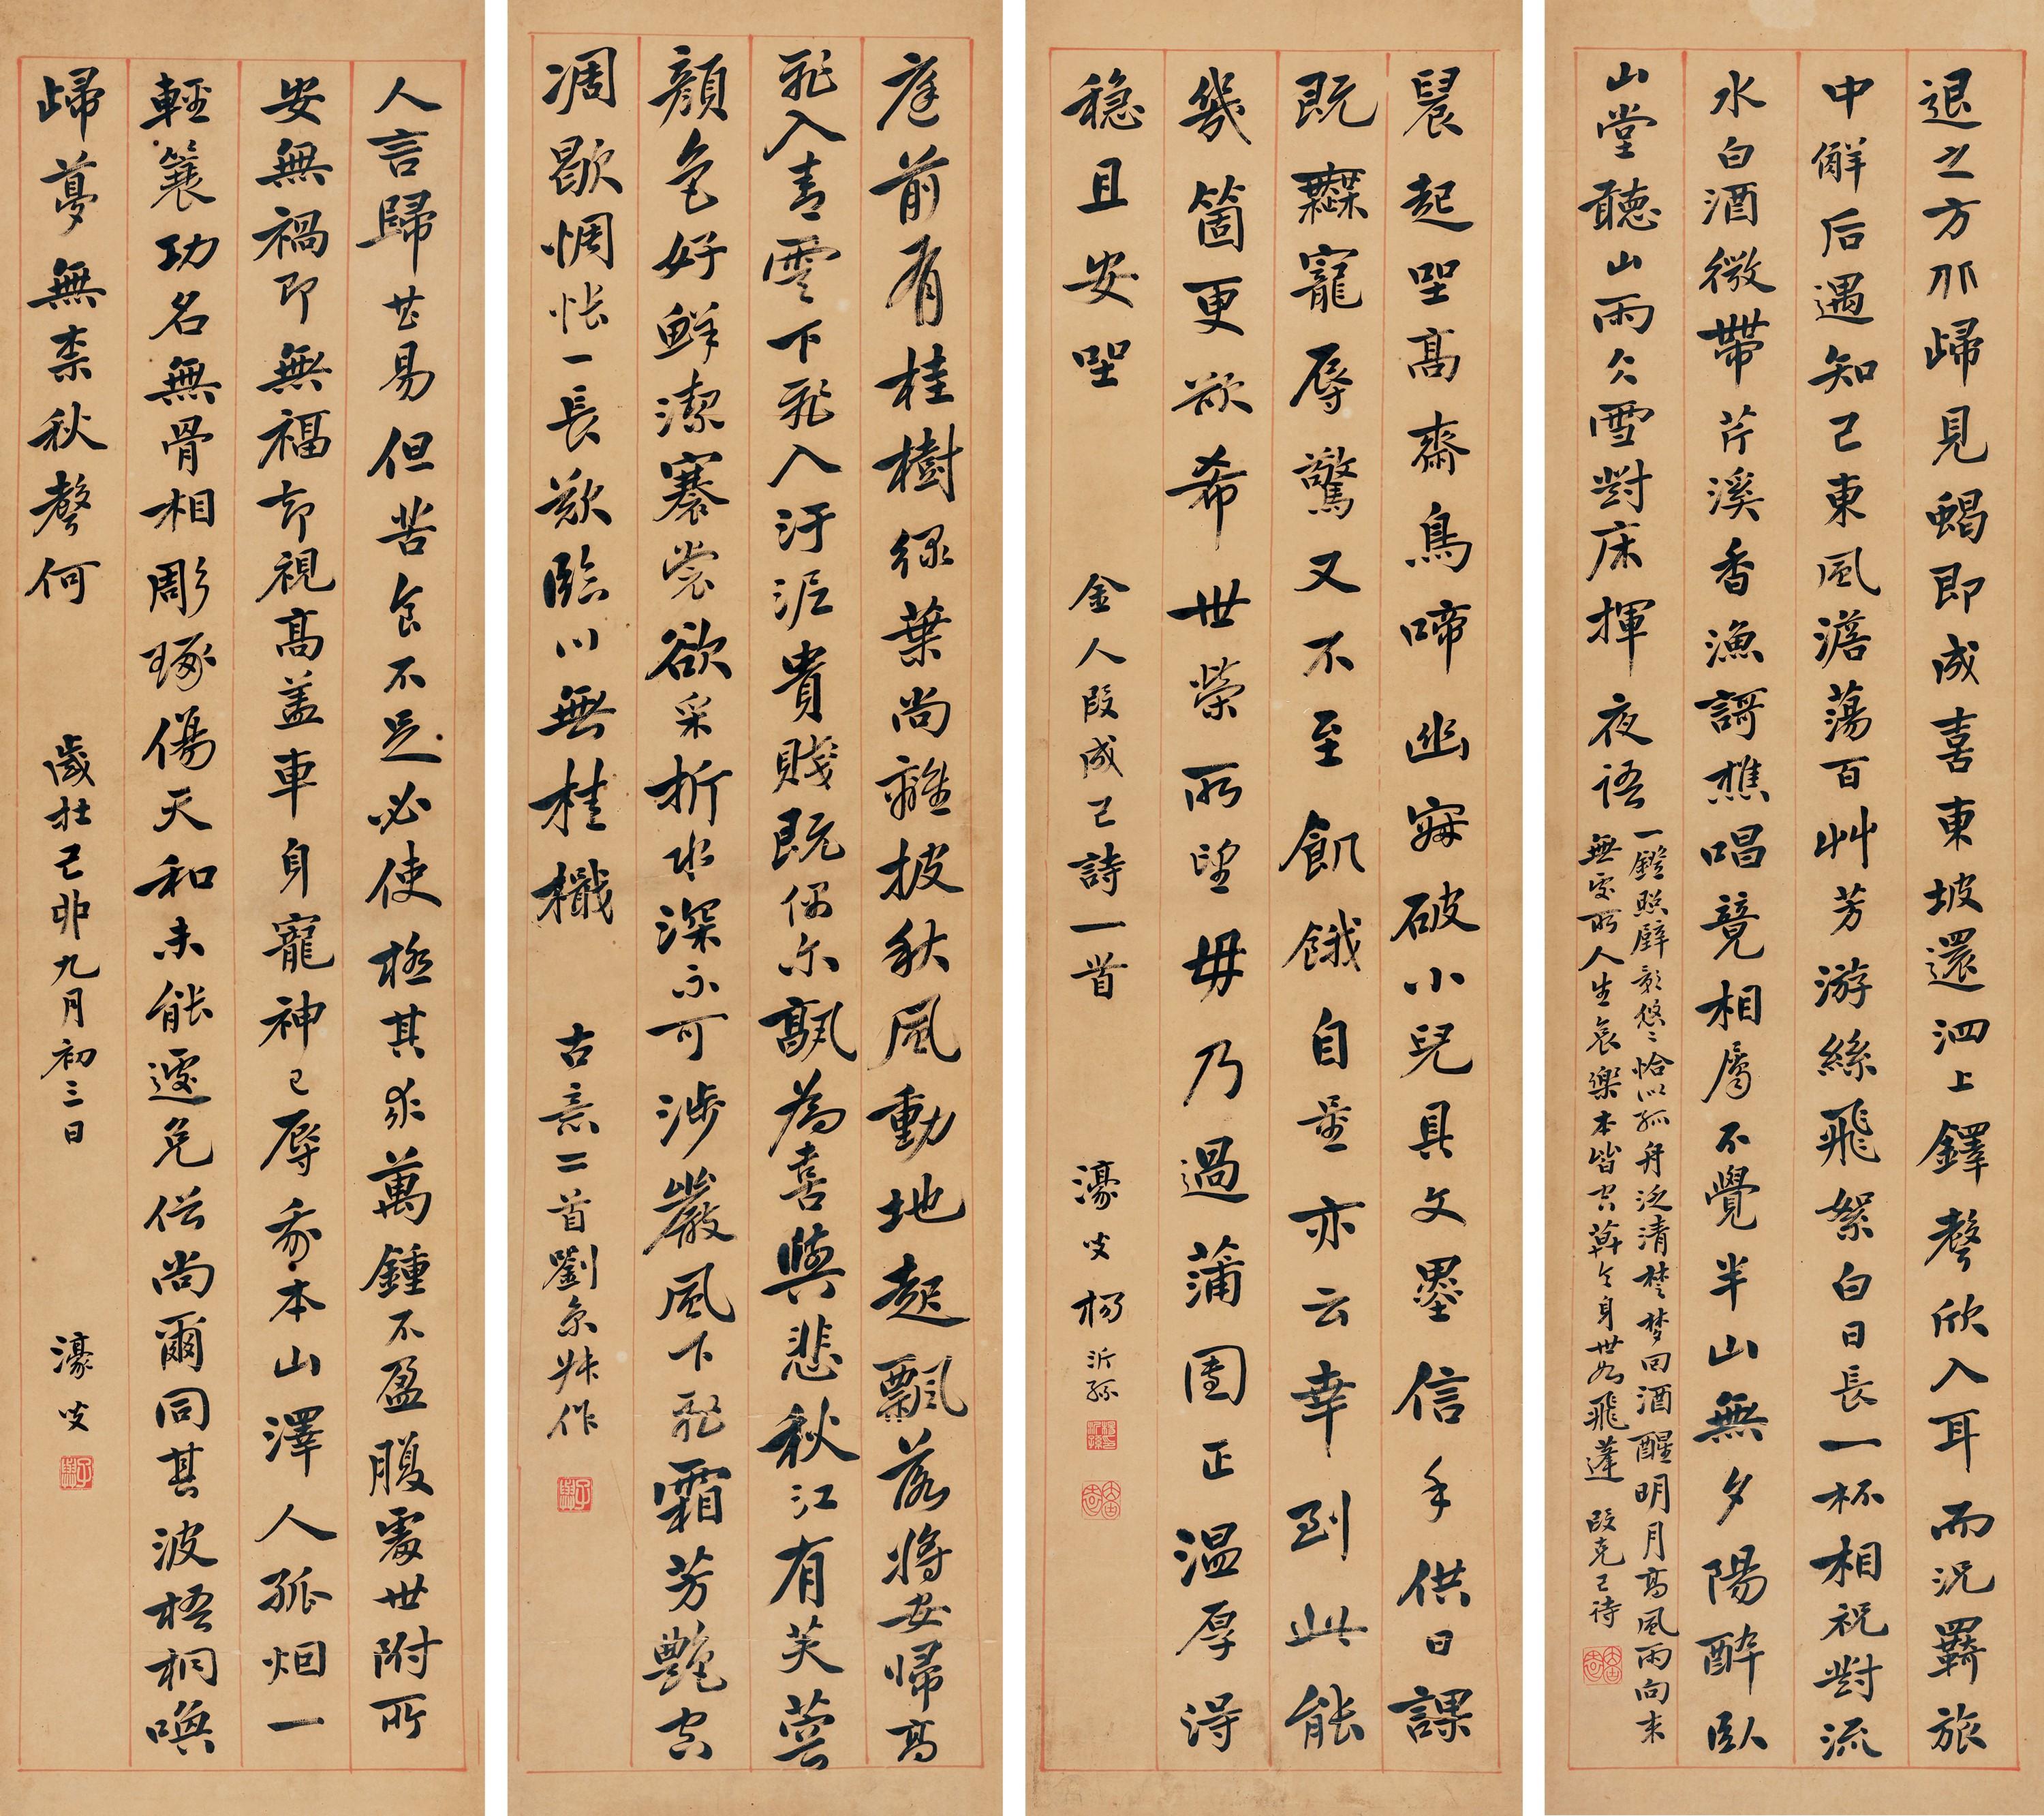 退之方邪歸見蝎即成喜東坡還泗上鐸聲欣入耳而況羈旅
中解后遇知己東風澹蕩百艸芳游絲飛絮白日長一杯相祝對流
水白酒微帶芹溪香漁謌樵唱竟相屬不覺半山無夕陽醉臥
山堂聽山雨公雪對床揮夜語
一鐙照壁影悠〻恰似孤舟泛清楚梦回酒醒明月高風雨向来
無處所人生哀樂本皆空莫令身世如飛蓬 段克己诗
晨起坐高齋鳥啼幽寐破小兒具文墨信手供日課
既無寵辱驚又不至飢餓自量亦云幸到此能
幾箇更欲希世榮所望毋乃過蒲團正温厚得
穏且安坐 金人段成己詩一首 濠叟楊沂孫
庭前有桂樹緑葉尚離披秋風動地起飄落將安歸高
飛入青雲下飛入汙泥貴賤既偶尔飄為喜與悲秋江有芙蓉
顏色好鮮潔褰裳欲采折水深不可涉巖風下飛霜芳艷空
凋歇惆悵一長歎臨川無桂檝 古意二首劉景獻作
人言歸甚易但苦食不足必使極其求萬鍾不盈腹處世附所
安無禍即無福却視高盖車身寵神已辱我本山澤人孤烟一
輕簑功名無骨相彫琢傷天和未能遽免俗尚爾同其波梧桐喚
歸夢無柰秋聲何 歲在己卯九月初三日 濠叟